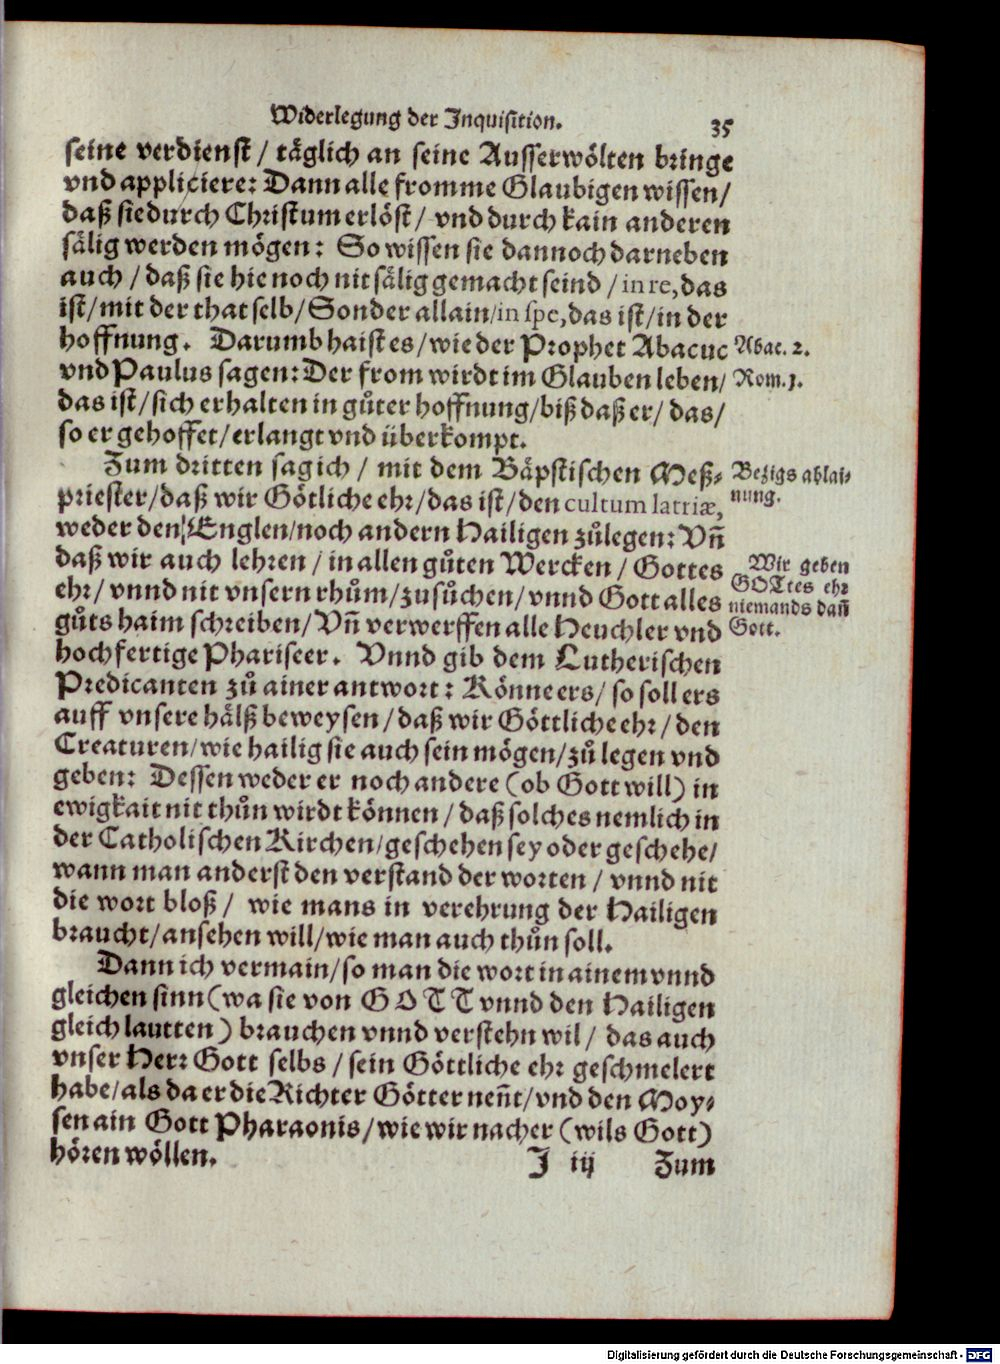 Widerlegung der Inquisition.
35
seine verdienst / täglich an seine Ausserwölten bringe
vnd appliciere: Dann alle fromme Glaubigen wissen/
daß sie durch Christum erlöst/ vnd durch kain anderen
sälig werden mögen: So wissen sie dannoch darneben
auch / daß sie hie noch nit sälig gemacht seind / in re, das
ist/ mit der that selb/ Sonder allain/ in spe, das ist/ in der
hoffnung. Darumb haist es/ wie der Prophet Abacuc
Abac. 2.
vnd Paulus sagen: Der from wirdt im Glauben leben/
Rom. 1.
das ist/ sich erhalten in gůter hoffnung/ biß daß er/ das/
so er gehoffet/ erlangt vnd überkompt.
Zum dritten sag ich / mit dem Bäpstischen Meß-
priester/ daß wir Götliche ehr/ das ist/ den cultum latriæ,
Bezigs ablai-
nung.
weder den Englen/ noch andern Hailigen zůlegen: Vñ
daß wir auch lehren / in allen gůten Wercken / Gottes
ehr/ vnnd nit vnsern rhům/ zusůchen/ vnnd Gott alles
gůts haim schreiben/ Vñ verwerffen alle Heuchler vnd
Wir geben
GOTtes ehr
niemands dañ
Gott.
hochfertige Phariseer. Vnnd gib dem Lutherischen
Predicanten zů ainer antwort: Könne ers/ so soll ers
auff vnsere hälß beweysen / daß wir Göttliche ehr / den
Creaturen/ wie hailig sie auch sein mögen/ zů legen vnd
geben: Dessen weder er noch andere (ob Gott will) in
ewigkait nit thůn wirdt können / daß solches nemlich in
der Catholischen Kirchen/ geschehen sey oder geschehe/
wann man anderst den verstand der worten / vnnd nit
die wort bloß / wie mans in verehrung der Hailigen
braucht/ ansehen will/ wie man auch thůn soll.
Dann ich vermain/ so man die wort in ainem vnnd
gleichen sinn (wa sie von GOTT vnnd den Hailigen
gleich lautten) brauchen vnnd verstehn wil / das auch
vnser Herr Gott selbs / sein Göttliche ehr geschmelert
habe/ als da er die Richter Götter neñt/ vnd den Moy-
sen ain Gott Pharaonis/ wie wir nacher (wils Gott)
hören wöllen.
J iij Zum
Digitalisierung gefördert durch die Deutsche Forschungsgemeinschaft - DFG